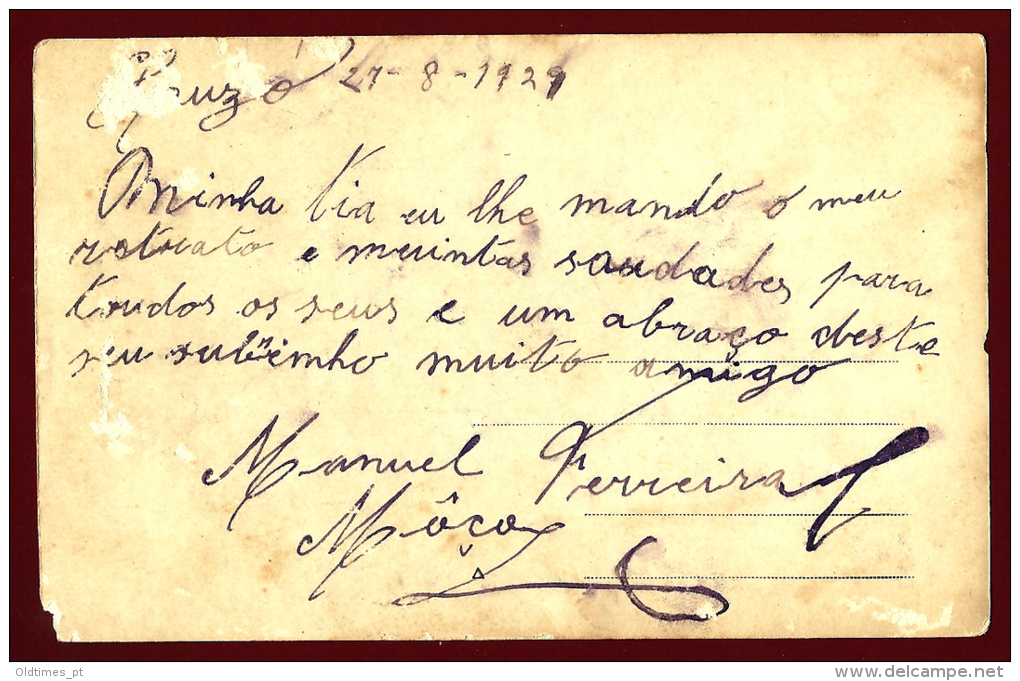 27-8-1929
Minha tia eu lhe mando o meu
retrato e muintas saudades para
toudos os seus e um abraço deste
seu muito amigo
Manuel Ferreira
Môço
Oldtimes_pt
www.delcampe.net